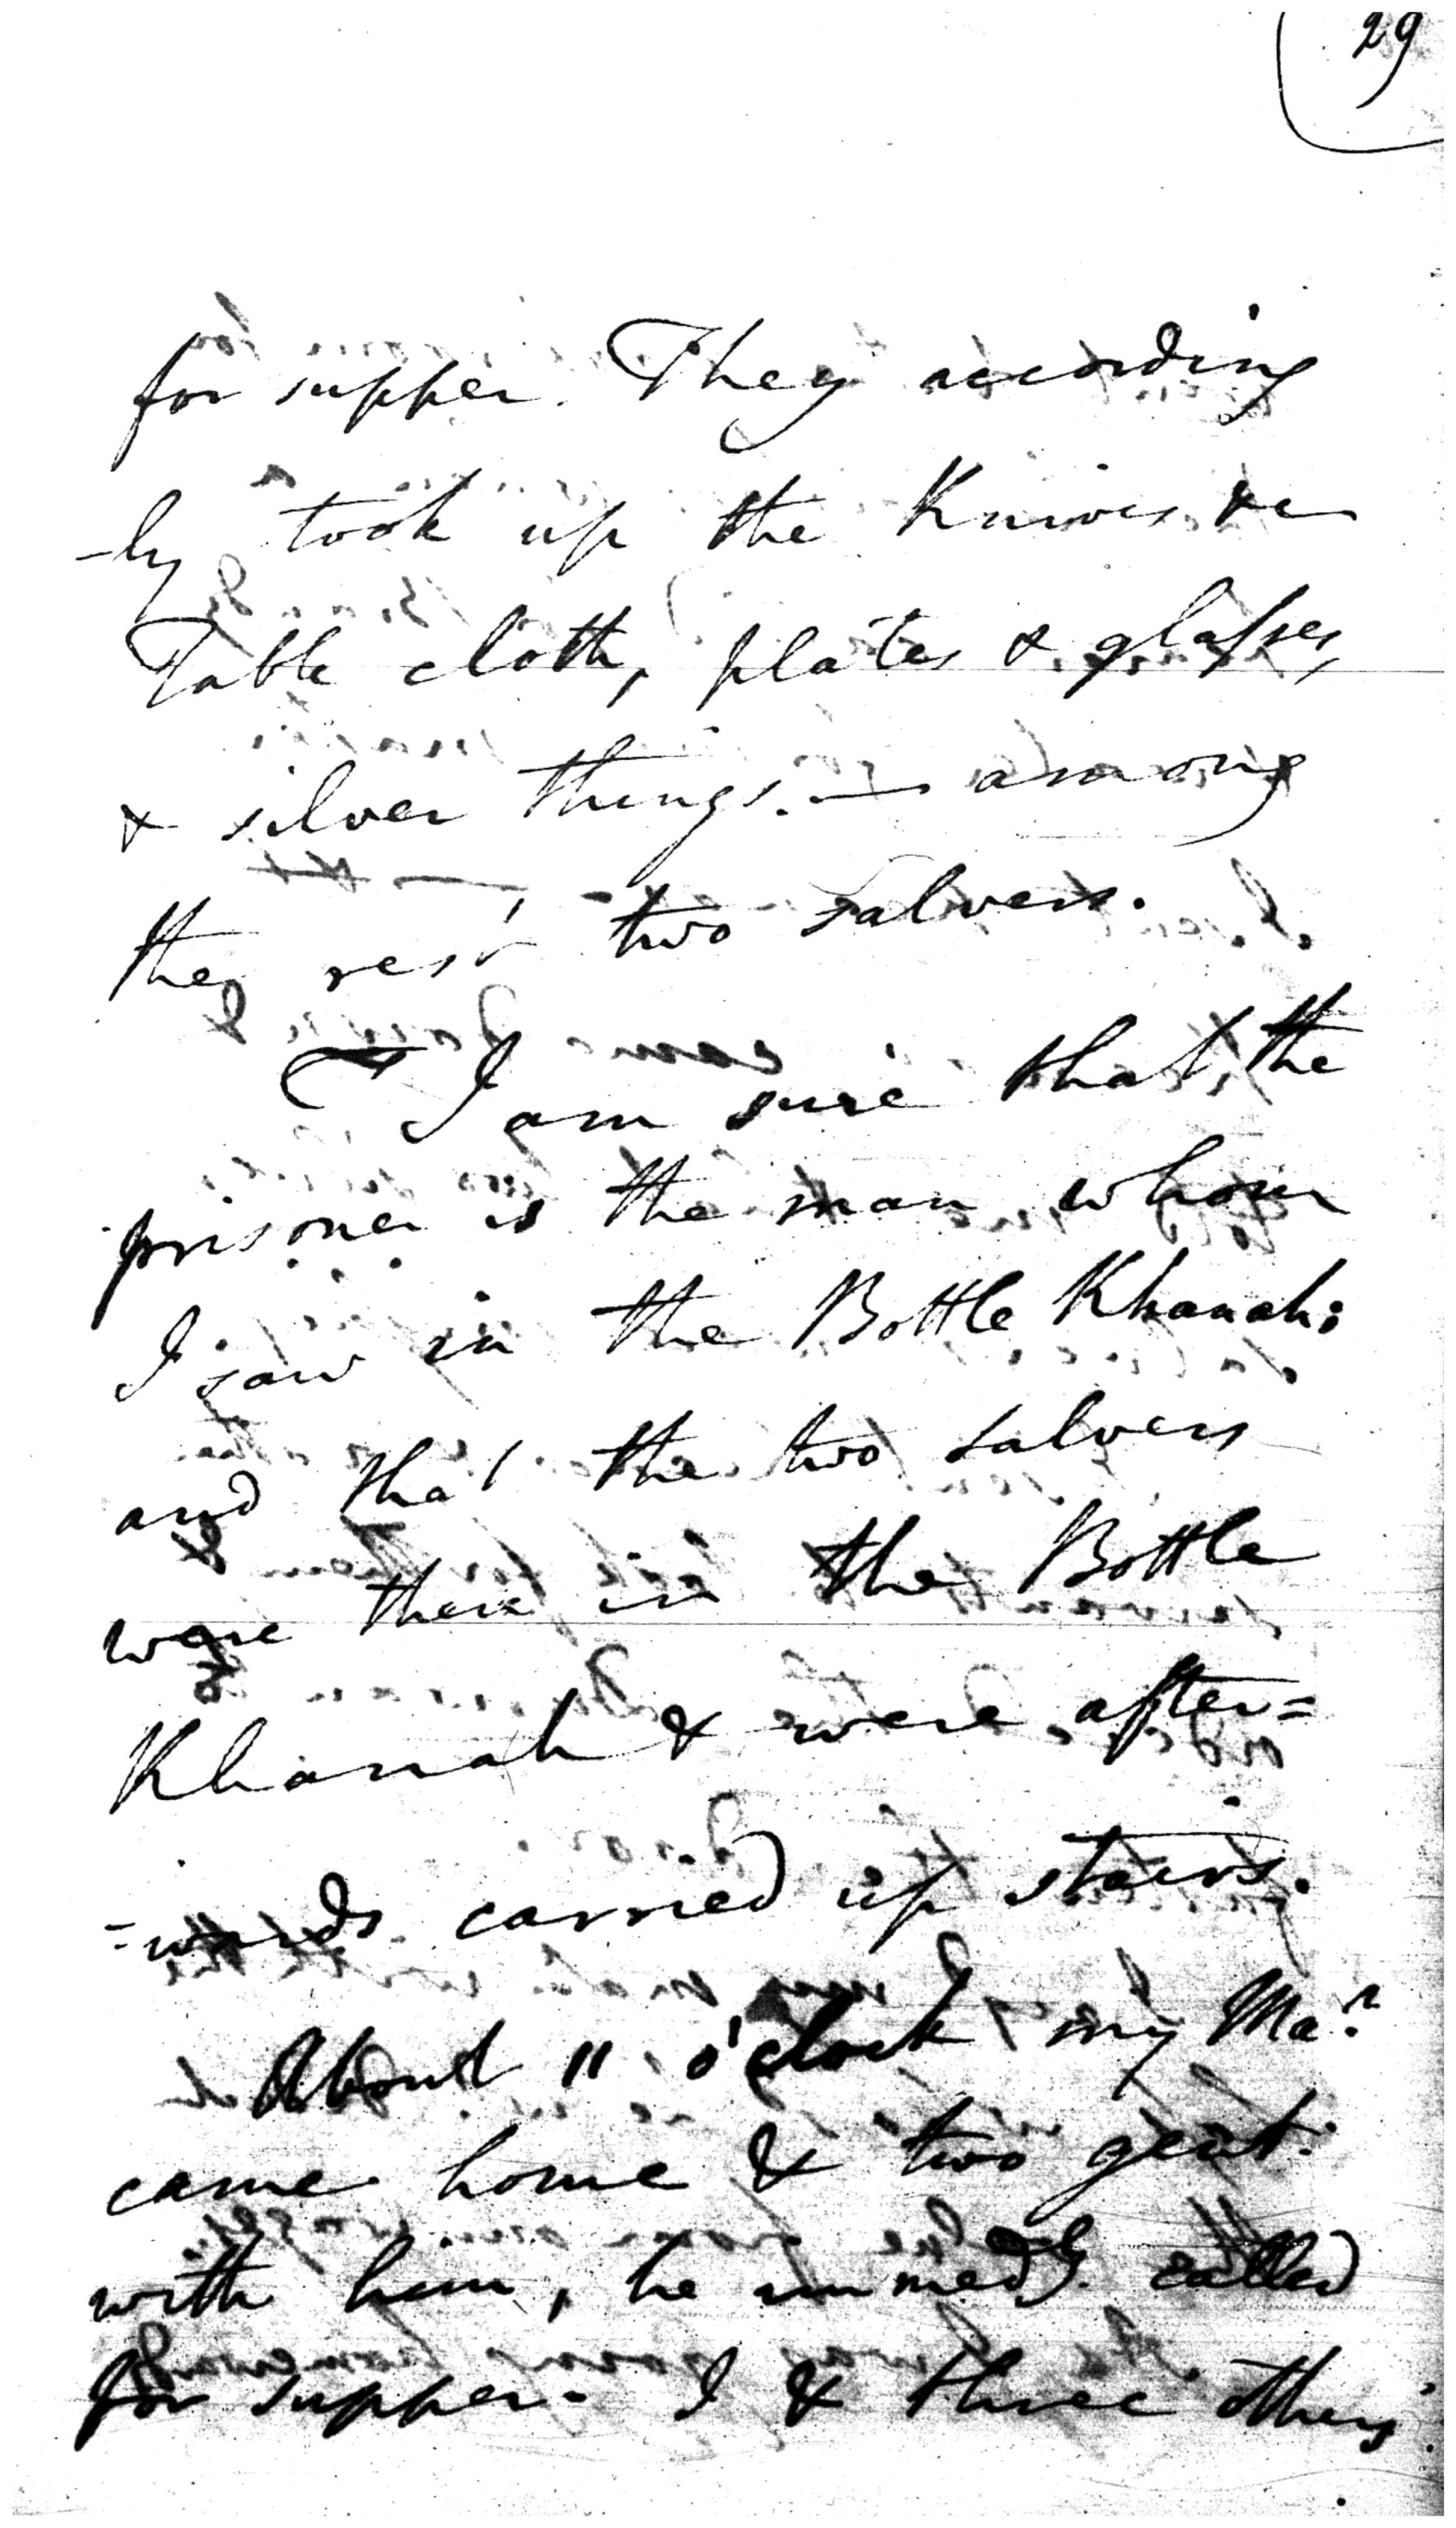 29
for supper. They according
-ly took up the Knives &c
Table cloth, plates & glasses,
& silver things. — among
the rest two salvers.
I am sure that the
prisoner is the man whom
I saw in the Bottle Khanah:
and that the two salvers
were there in the Bottle
Khanah & were after=
=wards carried up stairs.
About 11 o'clock my Mar.
came home & two gent.
with him, he immedy. called
for supper. I & three others